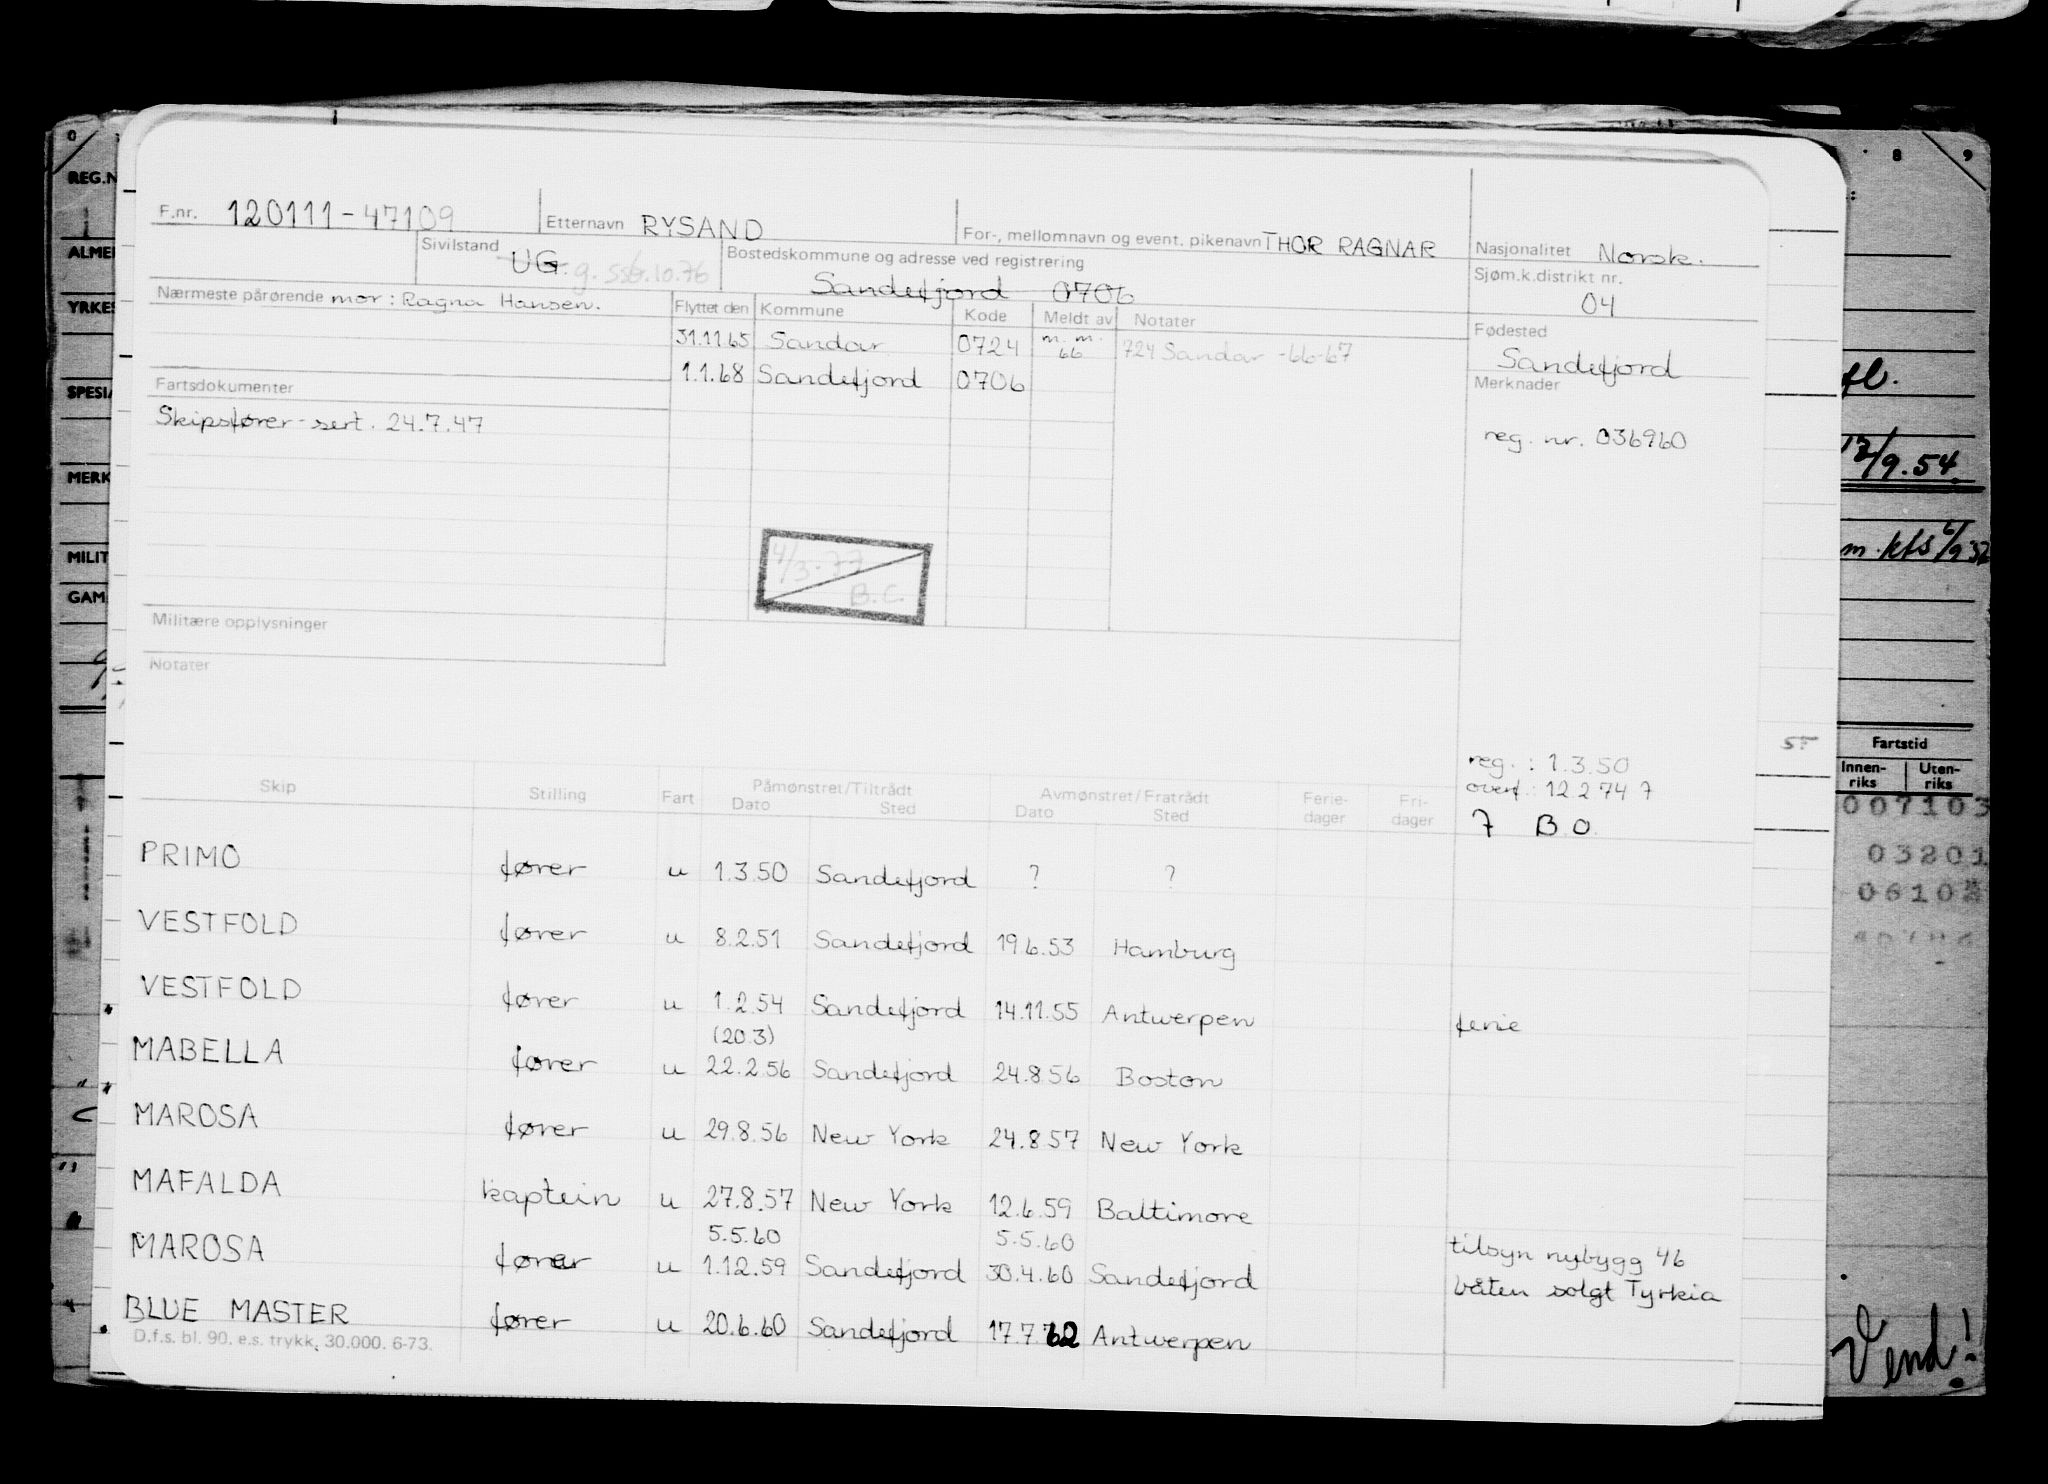 F.nr. 120111-47109 Etternavn RYSAND For-, mellomnavn og event. pikenavn THOR RAGNAR Nasjonalitet Norsk.
Sivilstand UG. g. Bostedskommune og adresse ved registrering Sandefjord 0706 Sjøm.k.distrikt nr. 04
Nærmeste pårørende mor: Ragna Hansen. Flyttet den Kommune Kode Meldt av Notater Fødested Sandefjord
31.11.65 Sandar 0724 m.m. 66 724 Sandar -66-67
1.1.68 Sandefjord 0706 Merknader
Fartsdokumenter
Skipsfører-sert. 24.7.47 reg. nr. 036960
4/3-77
B.C.
Militære opplysninger
Notater
reg.: 1.3.50
overf.: 12 2 74 7
7 B O
Skip Stilling Fart Påmønstret/Tiltrådt Dato Sted Avmønstret/Fratrådt Dato Sted Ferie-dager Fri-dager
PRIMO fører u 1.3.50 Sandefjord ? ?
VESTFOLD fører u 8.2.51 Sandefjord 19.6.53 Hamburg
VESTFOLD fører u 1.2.54 Sandefjord 14.11.55 Antwerpen ferie
(20.3)
MABELLA fører u 22.2.56 Sandefjord 24.8.56 Boston
MAROSA fører u 29.8.56 New York 24.8.57 New York
MAFALDA kaptein u 27.8.57 New York 12.6.59 Baltimore
5.5.60 5.5.60 tilsyn nybygg 46
MAROSA fører u 1.12.59 Sandefjord 30.4.60 Sandefjord båten solgt Tyrkia
BLUE MASTER fører u 20.6.60 Sandefjord 17.7.62 Antwerpen
D.f.s. bl. 90. e.s. trykk. 30.000. 6-73.
0
REG.N
ALME
YRKES
SPESI
MERK
MILIT
GAM
8 9
fl.
12/9.54.
m.kfs 6/9 52
Fartstid
Innen-riks Uten-riks
007103
03201
Vend!